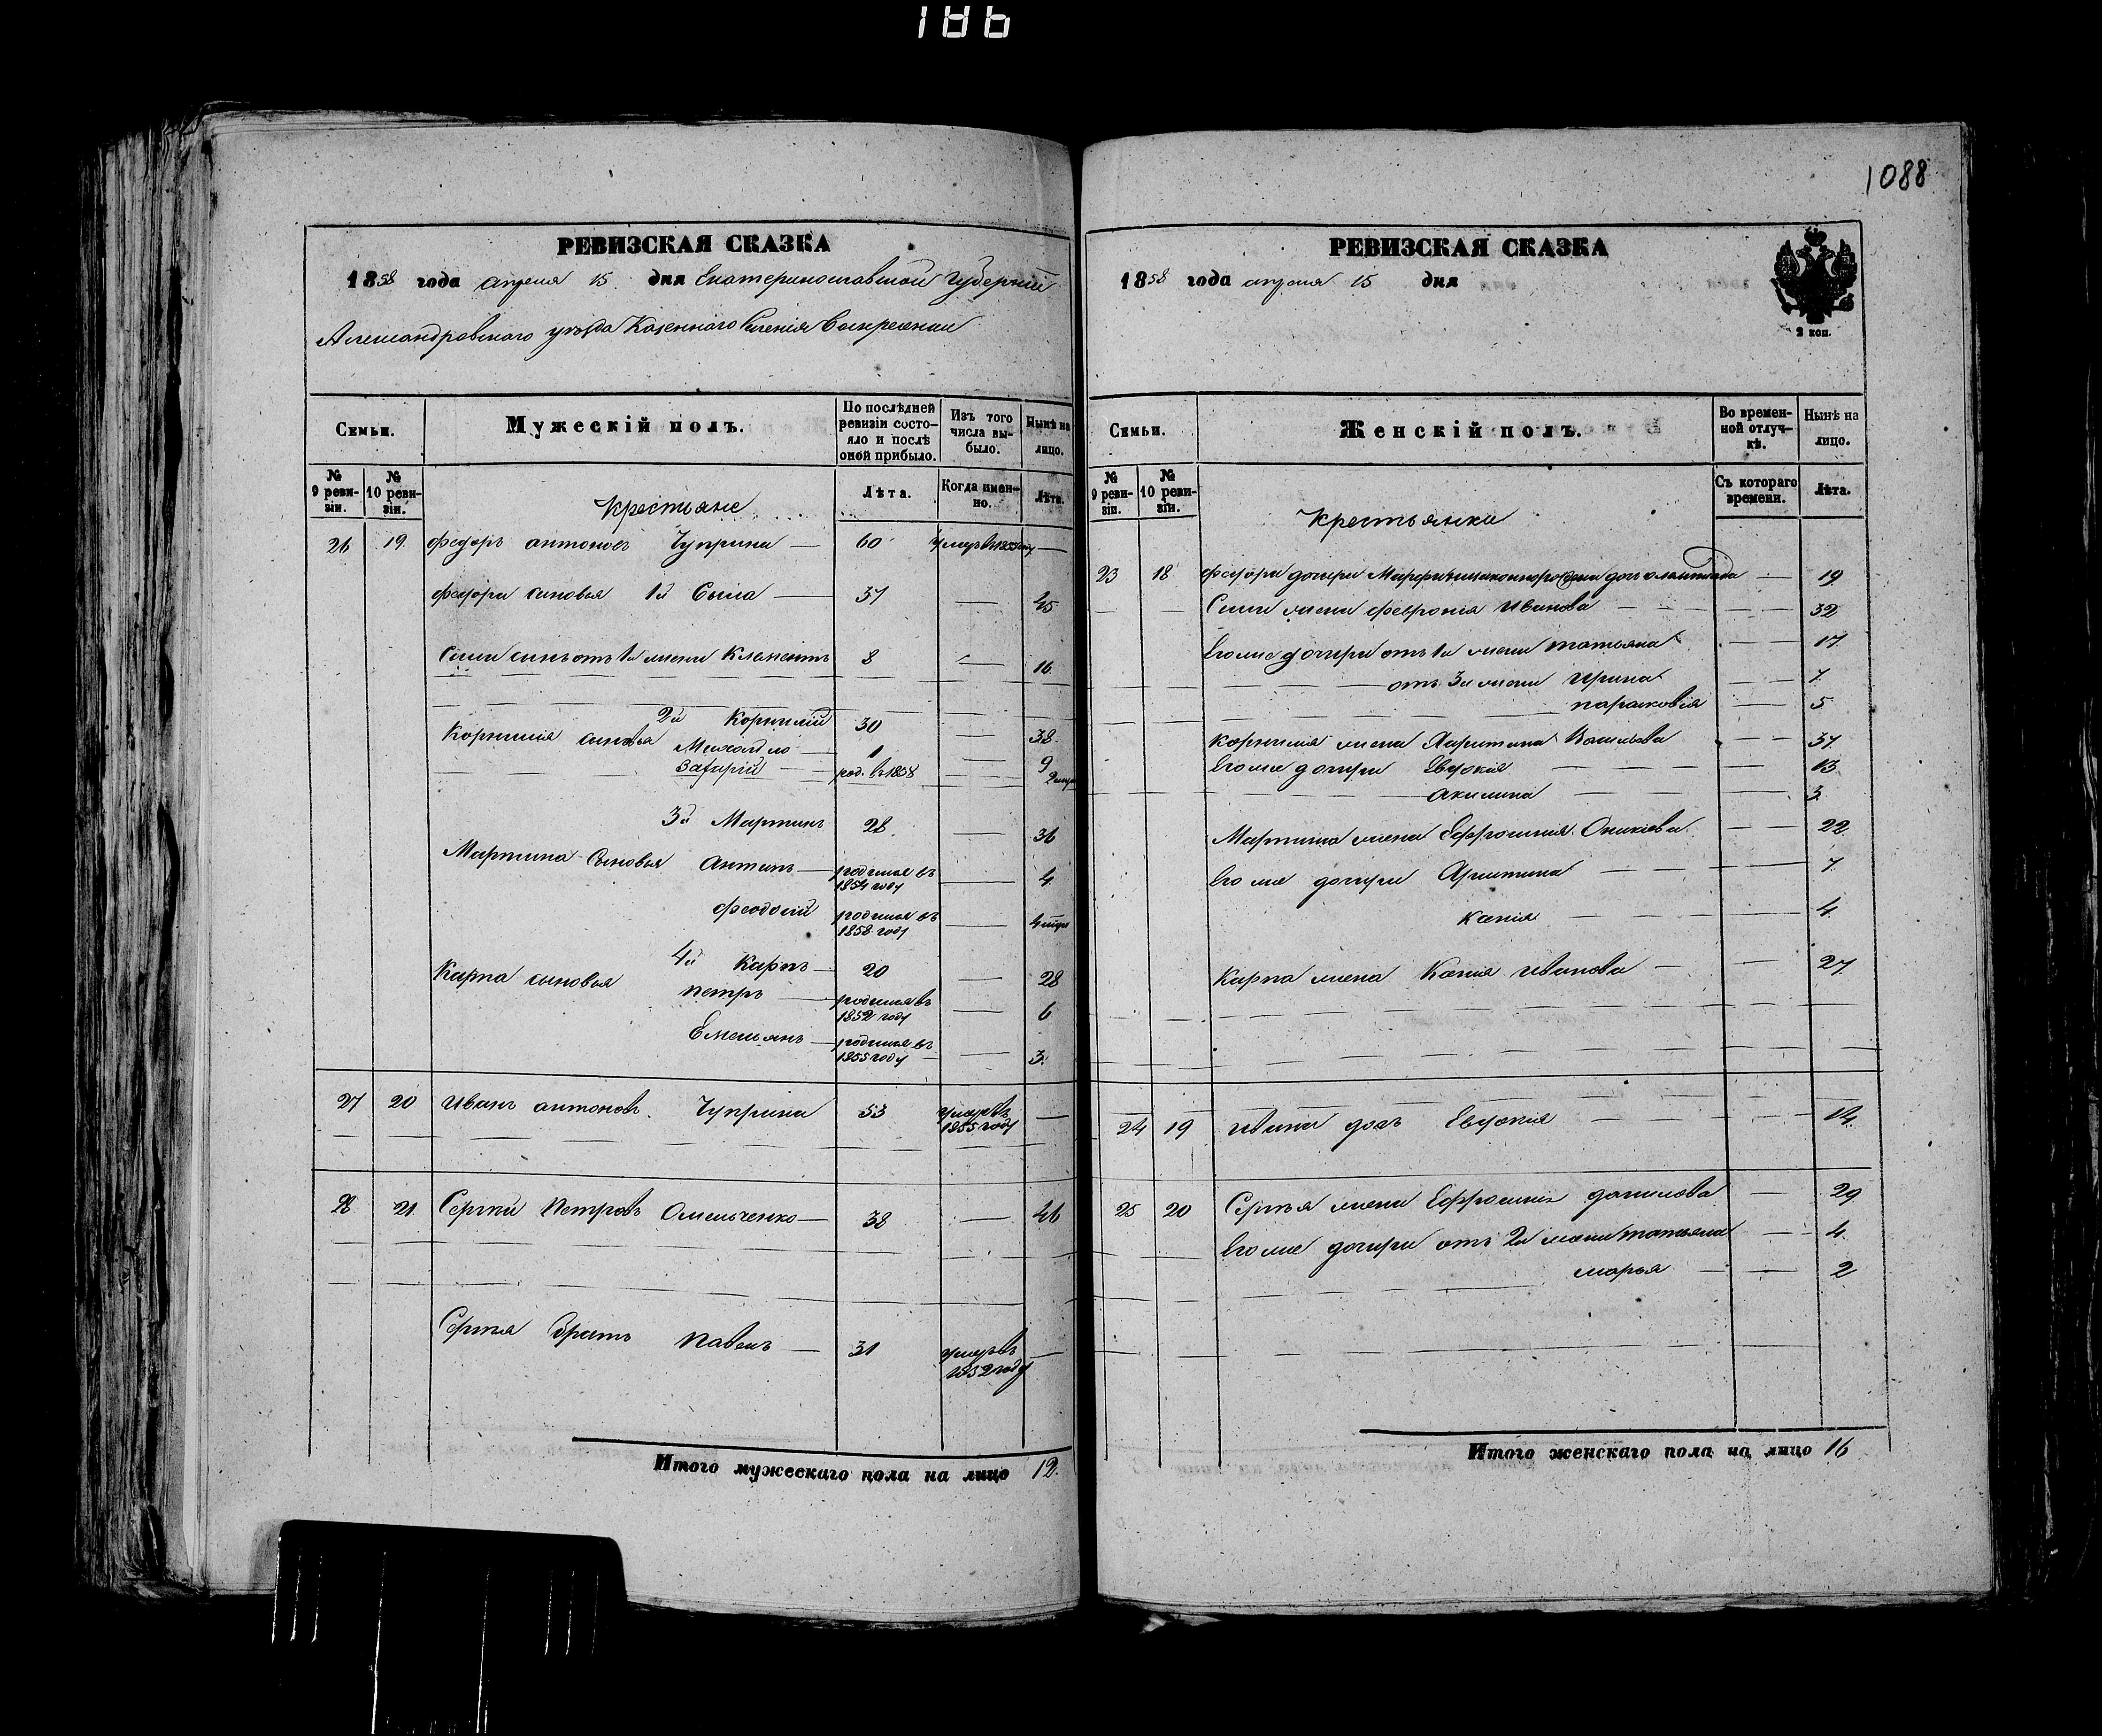 186
1088
РЕВИЗСКАЯ СКАЗКА
1858 года апреля 15 дня Екатеринославской Губернiи
Александровского уезда Казенного Селенiя Воскресенки
Семьи.
Мужескій полъ.
По послѣдней ревизіи состояло и послѣ оной прибыло.
Изъ того числа выбыло.
Нынѣ на лицо.
№ 9 ревизіи.
№ 10 ревизіи.
Лѣта.
Когда именно.
Лѣта.
Крестьяне
26 19 Федоръ антоновъ Чуприна — 60 умеръ въ 1855 году —
Федора сыновья 1й Сыла — 37 — 45
Сылы сынъ отъ 1й жены Климентъ 8 — 16
2й Корнилій 30 — 38
Корнилія сыновья Михайло — 1 — 9
Захарій — род. въ 1858 —
3й Мартинъ 28 — 36
Мартина Сыновья Антипъ — родился въ 1854 году — 4
Феодосій родился въ 1858 году —
4й Карпъ — 20 — 28
Карпа сыновья петръ — родился въ 1852 году — 6
Емельянъ — родился въ 1855 году — 3
27 20 Иванъ антоновъ Чуприна 53 умеръ въ 1855 году —
28 21 Сергѣй Петровъ Омельченко — 38 — 46
Сергѣя Братъ Павелъ — 31 умеръ въ 1852 году —
Итого мужескаго пола на лицо 12.
РЕВИЗСКАЯ СКАЗКА
1858 года апреля 15 дня
2 коп.
Семьи.
Женскій полъ.
Во временной отлучкѣ.
Нынѣ на лицо.
№ 9 ревизіи.
№ 10 ревизіи.
Съ котораго времени.
Лѣта.
Крестьянки
23 18 Федора дочери Марфы дочь — 19
Сылы жена Феврония Иванова — 32
Его же дочери отъ 1й жены татьяна — 17
отъ 3й жены Ирина — 7
парасковія — 5
Корнилія жена Харитина Васильева — 37
Его же дочери Евдокія — 13
Акилина — 3
Мартина жена Ефросинія Оникіева — 22
Его же дочери Христина — 7
Ксенія — 4
Карпа жена Ксенія Иванова — 27
24 19 Ивана дочь Евдокія — 14
25 20 Сергѣя жена Ефросинія данилова — 29
Его же дочери отъ 2й жены татьяна — 4
марья — 2
Итого женскаго пола на лицо 16